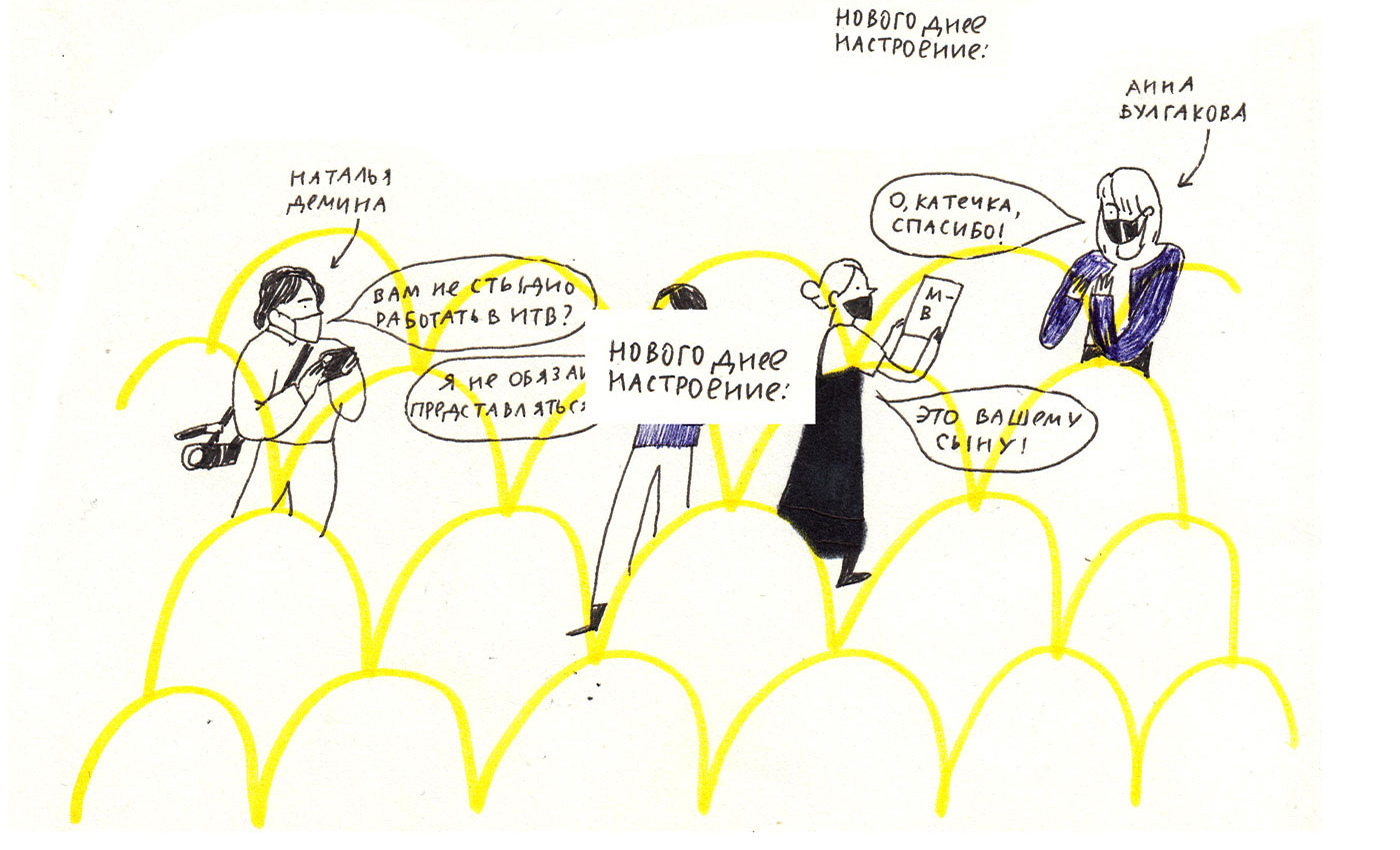 НОВОГОДНЕЕ
НАСТРОЕНИЕ:
АННА
БУЛГАКОВА
НАТАЛЬЯ
ДЕМИНА
О, КАТЕЧКА,
СПАСИБО!
ВАМ НЕ СТЫДНО
РАБОТАТЬ В НТВ?
М-
В
НОВОГОДНЕЕ
НАСТРОЕНИЕ:
Я НЕ ОБЯЗАН
ПРЕДСТАВЛЯТЬСЯ
ЭТО ВАШЕМУ
СЫНУ!